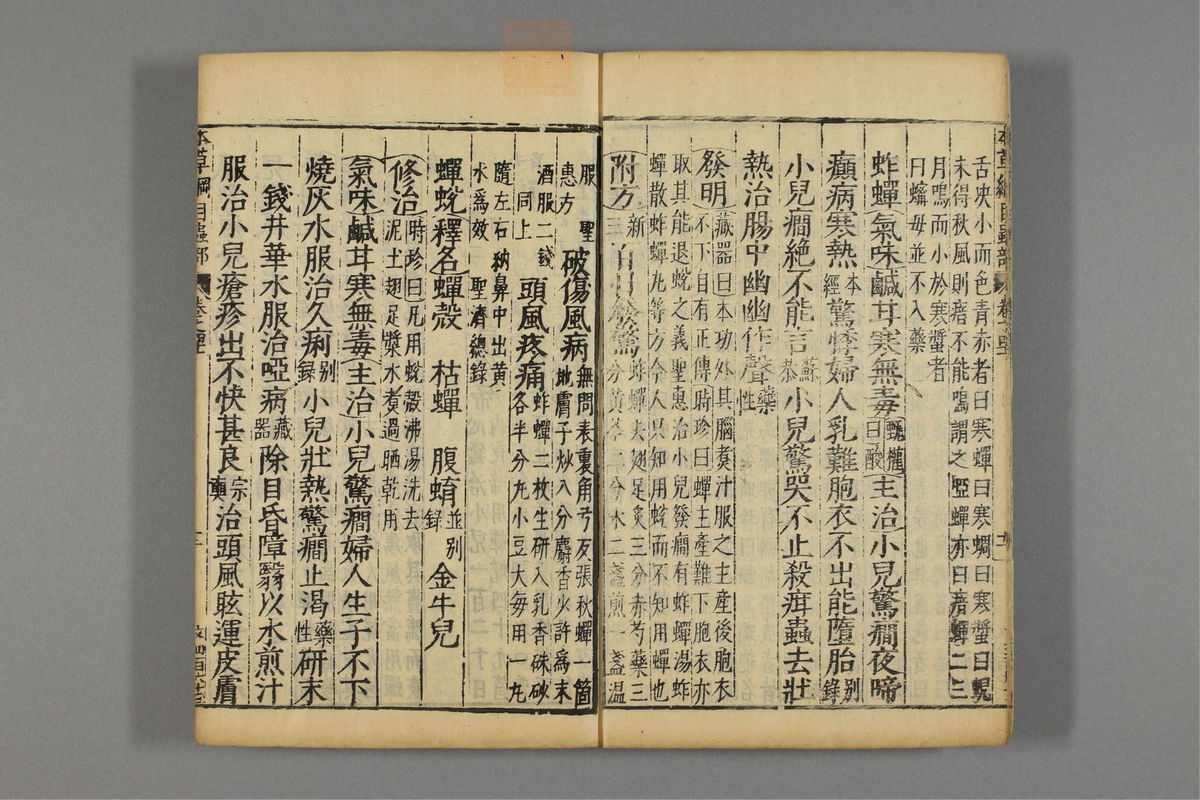 本草綱目蟲部
舌㕮小而色青赤者曰寒蟬曰寒蜩曰寒螿曰蜺
未得秋風則瘖不能鳴謂之啞蟬亦曰瘖蟬二三
月鳴而小於寒螿者
曰蠐母並不入藥
蚱蟬氣味鹹甘寒無毒甄權曰酸主治小兒驚癇夜啼
癲病寒熱本經驚悸婦人乳難胞衣不出能墮胎別錄
小兒癇絕不能言蘇恭小兒驚哭不止殺疳蟲去壯
熱治腸中幽幽作聲藥性
發明藏器曰本功外其腦煮汁服之主產後胞衣
不下自有正傳時珍曰蟬主產難下胞衣亦
取其能退蛻之義聖惠治小兒發癇有蚱蟬湯蚱
蟬散蚱蟬丸等方今人只知用蛻而不知用蟬也
附方新三百日發驚蚱蟬去翅足炙三分赤芍藥三
分黃芩二分水二盞煎一盞溫
服聖惠方破傷風病無問表裏角弓反張秋蟬一箇
地膚子炒八分麝香少許為末
酒服二錢同上頭風疼痛蚱蟬二枚生研入乳香硃砂
各半分丸小豆大每用一丸
隨左右納鼻中出黃
水為效聖濟總錄
蟬蛻釋名蟬殼 枯蟬 腹蜟並別錄 金牛兒
修治時珍曰凡用蛻殼沸湯洗去
泥土翅足漿水煮過晒乾用
氣味鹹甘寒無毒主治小兒驚癇婦人生子不下
燒灰水服治久痢別錄小兒壯熱驚癇止渴藥性研末
一錢井華水服治啞病藏器除目昏障翳以水煎汁
服治小兒瘡疹出不快甚良宗奭治頭風眩運皮膚
本草綱目蟲部